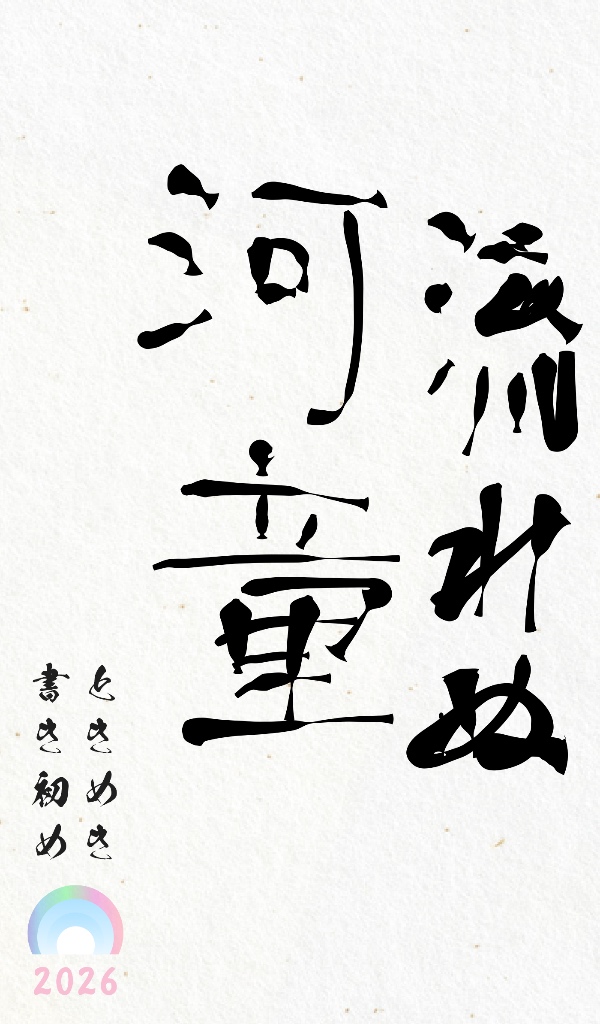 流れぬ
河童
ときめき
書き初め
2026